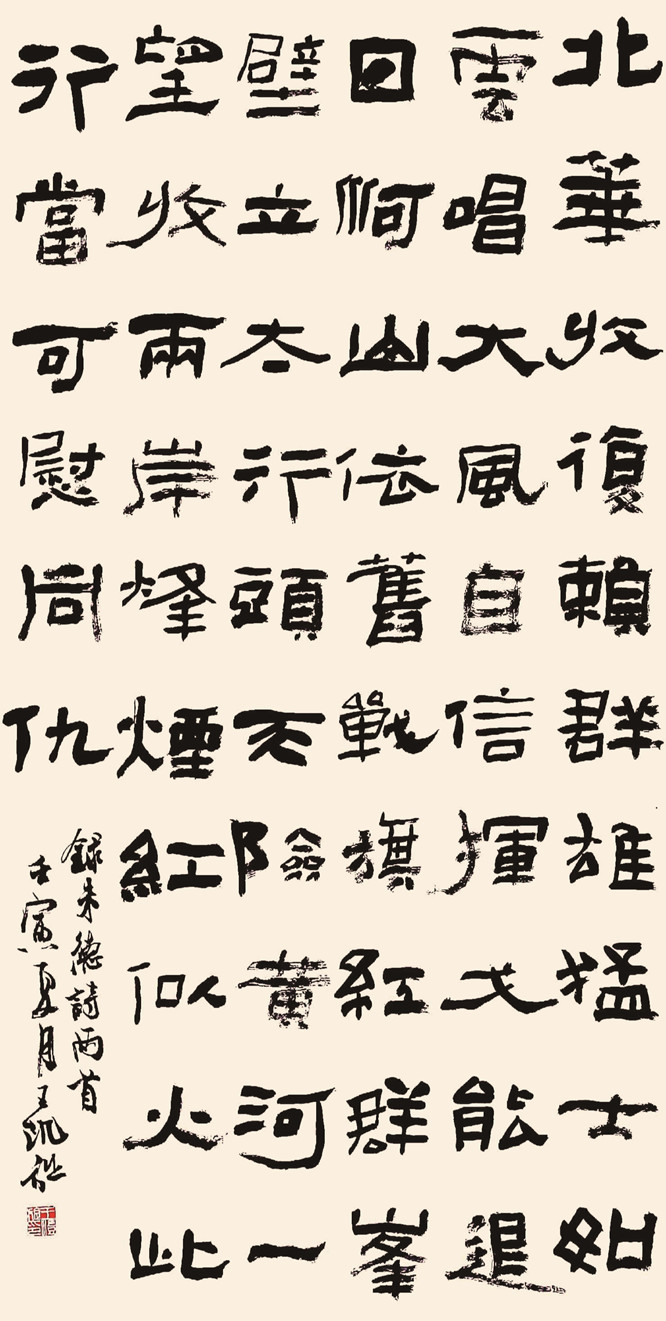 北華收復賴群雄猛士如
雲唱大風自信揮戈能退
日河山依舊戰旗紅群峯
壁立太行頭天險黃河一
望收兩岸烽煙紅似火此
行當可慰同仇
錄朱德詩兩首
壬寅夏月王凱